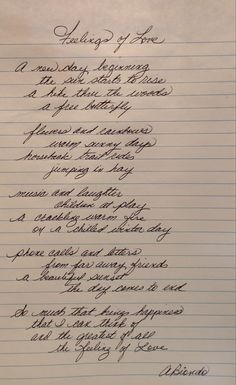 Feelings of Love
A new day beginning
the sun starts to rise
a hike thru the woods
a free butterfly
flowers and rainbows
warm sunny days
horseback trail rides
jumping in hay
music and laughter
children at play
a crackling warm fire
on a chilled winter day
phone calls and letters
from far away friends
a beautiful sunset
the day comes to end
So much that brings happiness
that I can think of
and the greatest of all
the feeling of Love
ABiondo